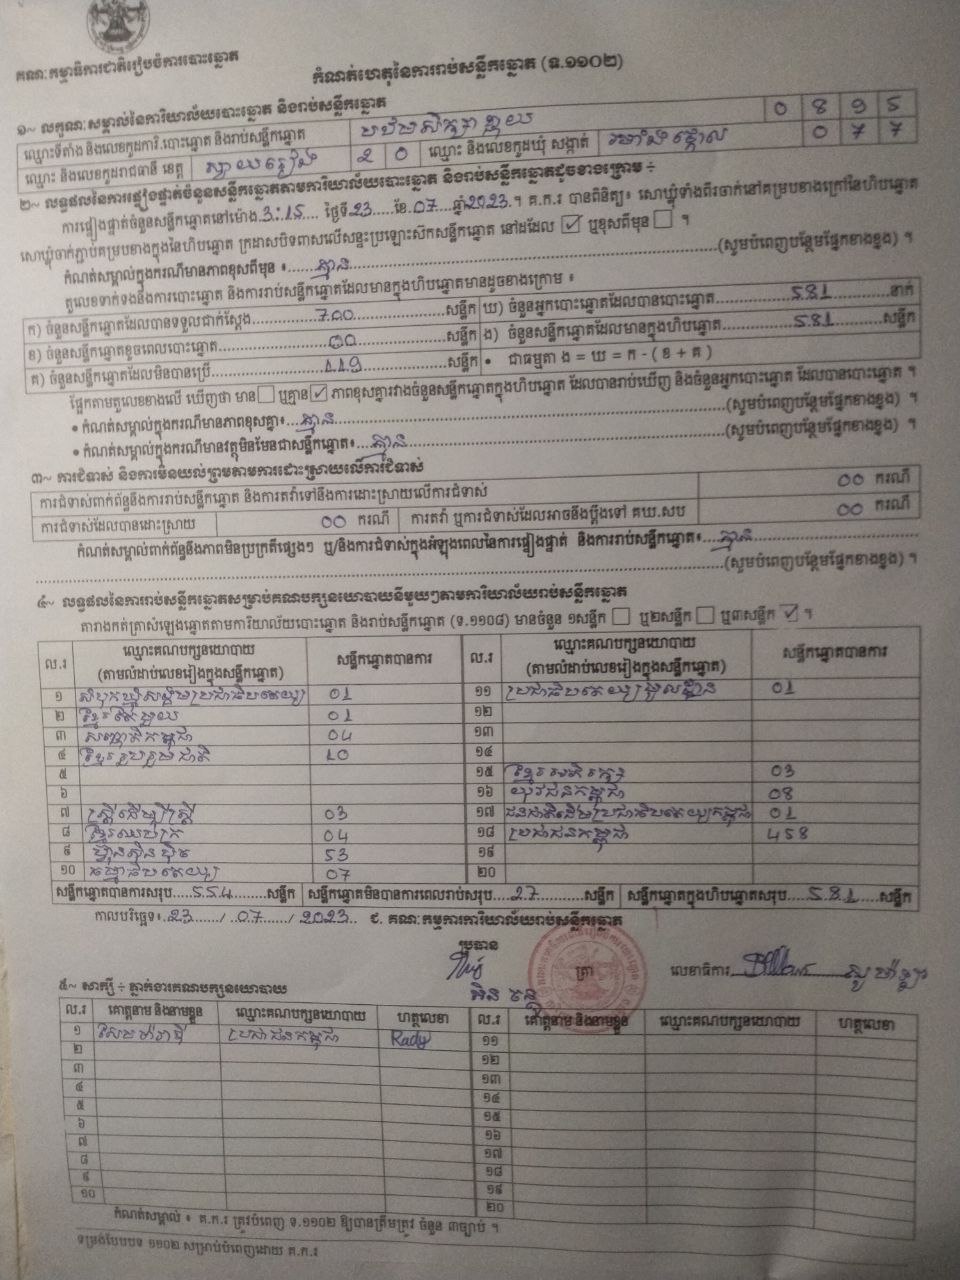 គណៈកម្មាធិការជាតិរៀបចំការបោះឆ្នោត
កំណត់ហេតុនៃការរាប់សន្លឹកឆ្នោត (ទ.១១០២)
១~ លក្ខណៈសម្គាល់នៃការិយាល័យបោះឆ្នោត និងរាប់សន្លឹកឆ្នោត
ឈ្មោះទីតាំង និងលេខកូដការិ.បោះឆ្នោត និងរាប់សន្លឹកឆ្នោត 0 8 9 5
ឈ្មោះ និងលេខកូដរាជធានី ខេត្ត ស្វាយរៀង 2 0 ឈ្មោះ និងលេខកូដឃុំ សង្កាត់ 0 7 7
២~ លទ្ធផលនៃការផ្ទៀងផ្ទាត់ចំនួនសន្លឹកឆ្នោតតាមការិយាល័យបោះឆ្នោត និងរាប់សន្លឹកឆ្នោតដូចខាងក្រោម ÷
ការផ្ទៀងផ្ទាត់ចំនួនសន្លឹកឆ្នោតនៅម៉ោង 3:15 ថ្ងៃទី 23 ខែ 07 ឆ្នាំ 2023 ។ គ.ក.រ បានពិនិត្យ៖ សោឃ្លុំទាំងពីរចាក់នៅគម្របខាងក្រៅនៃហិបឆ្នោត
សោឃ្លុំចាក់ភ្ជាប់គម្របខាងក្នុងនៃហិបឆ្នោត ក្រដាសបិទពាសលើសន្ទះប្រឡោះស៊កសន្លឹកឆ្នោត នៅដដែល ☑ ឬខុសពីមុន ☐ ។
កំណត់សម្គាល់ក្នុងករណីមានភាពខុសពីមុន ៖ គ្មាន (សូមបំពេញបន្ថែមផ្នែកខាងខ្នង) ។
តួលេខទាក់ទងនឹងការបោះឆ្នោត និងការរាប់សន្លឹកឆ្នោតដែលមានក្នុងហិបឆ្នោតមានដូចខាងក្រោម ៖
ក) ចំនួនសន្លឹកឆ្នោតដែលបានទទួលជាក់ស្តែង 700 សន្លឹក ឃ) ចំនួនអ្នកបោះឆ្នោតដែលបានបោះឆ្នោត 581 នាក់
ខ) ចំនួនសន្លឹកឆ្នោតខូចពេលបោះឆ្នោត 00 សន្លឹក ង) ចំនួនសន្លឹកឆ្នោតដែលមានក្នុងហិបឆ្នោត 581 សន្លឹក
គ) ចំនួនសន្លឹកឆ្នោតដែលមិនបានប្រើ 119 សន្លឹក • ជាធម្មតា ង = ឃ = ក - ( ខ + គ )
ផ្អែកតាមតួលេខខាងលើ ឃើញថា មាន ☐ ឬគ្មាន ☑ ភាពខុសគ្នារវាងចំនួនសន្លឹកឆ្នោតក្នុងហិបឆ្នោត ដែលបានរាប់ឃើញ និងចំនួនអ្នកបោះឆ្នោត ដែលបានបោះឆ្នោត ។
• កំណត់សម្គាល់ក្នុងករណីមានភាពខុសគ្នា៖ គ្មាន (សូមបំពេញបន្ថែមផ្នែកខាងខ្នង) ។
• កំណត់សម្គាល់ក្នុងករណីមានវត្ថុមិនមែនជាសន្លឹកឆ្នោត៖ គ្មាន (សូមបំពេញបន្ថែមផ្នែកខាងខ្នង) ។
៣~ ការជំទាស់ និងការមិនយល់ព្រមតាមការដោះស្រាយលើការជំទាស់
ការជំទាស់ពាក់ព័ន្ធនឹងការរាប់សន្លឹកឆ្នោត និងការតវ៉ាទៅនឹងការដោះស្រាយលើការជំទាស់ 00 ករណី
ការជំទាស់ដែលបានដោះស្រាយ 00 ករណី ការតវ៉ា ឬការជំទាស់ដែលអាចនឹងប្តឹងទៅ គឃ.សប 00 ករណី
កំណត់សម្គាល់ពាក់ព័ន្ធនឹងភាពមិនប្រក្រតីផ្សេងៗ ឬ/និងការជំទាស់ក្នុងអំឡុងពេលនៃការផ្ទៀងផ្ទាត់ និងការរាប់សន្លឹកឆ្នោត៖ គ្មាន
(សូមបំពេញបន្ថែមផ្នែកខាងខ្នង) ។
៤~ លទ្ធផលនៃការរាប់សន្លឹកឆ្នោតសម្រាប់គណបក្សនយោបាយនីមួយៗតាមការិយាល័យរាប់សន្លឹកឆ្នោត
តារាងកត់ត្រាសំឡេងឆ្នោតតាមការិយាល័យបោះឆ្នោត និងរាប់សន្លឹកឆ្នោត (ទ.១១០៨) មានចំនួន ១សន្លឹក ☐ ឬ២សន្លឹក ☐ ឬ៣សន្លឹក ☑ ។
ល.រ ឈ្មោះគណបក្សនយោបាយ (តាមលំដាប់លេខរៀងក្នុងសន្លឹកឆ្នោត) សន្លឹកឆ្នោតបានការ ល.រ ឈ្មោះគណបក្សនយោបាយ (តាមលំដាប់លេខរៀងក្នុងសន្លឹកឆ្នោត) សន្លឹកឆ្នោតបានការ
១ សំបុកឃ្មុំសង្គមប្រជាធិបតេយ្យ 01 ១១ ប្រជាធិបតេយ្យមូលដ្ឋាន 01
២ ខ្មែរតែមួយ 01 ១២
៣ សញ្ជាតិកម្ពុជា 04 ១៣
៤ ខ្មែររួបរួមជាតិ 10 ១៤
៥ ១៥ ខ្មែរអភិរក្ស 03
៦ ១៦ យុវជនកម្ពុជា 08
៧ ស្ត្រីដើម្បីស្ត្រី 03 ១៧ ជនជាតិដើមប្រជាធិបតេយ្យកម្ពុជា 01
៨ ខ្មែរឈប់ក្រ 04 ១៨ ប្រជាជនកម្ពុជា 458
៩ ហ៊្វុនស៊ិនប៉ិច 53 ១៩
១០ ធម្មាធិបតេយ្យ 07 ២០
សន្លឹកឆ្នោតបានការសរុប 554 សន្លឹក សន្លឹកឆ្នោតមិនបានការពេលរាប់សរុប 27 សន្លឹក សន្លឹកឆ្នោតក្នុងហិបឆ្នោតសរុប 581 សន្លឹក
កាលបរិច្ឆេទ៖ 23 / 07 / 2023 ជ. គណៈកម្មការការិយាល័យរាប់សន្លឹកឆ្នោត
ប្រធាន
ត្រា លេខាធិការ
៥~ សាក្សី ÷ ភ្នាក់ងារគណបក្សនយោបាយ
ល.រ គោត្តនាម និងនាមខ្លួន ឈ្មោះគណបក្សនយោបាយ ហត្ថលេខា ល.រ គោត្តនាម និងនាមខ្លួន ឈ្មោះគណបក្សនយោបាយ ហត្ថលេខា
១ ប្រជាជនកម្ពុជា Rady ១១
២ ១២
៣ ១៣
៤ ១៤
៥ ១៥
៦ ១៦
៧ ១៧
៨ ១៨
៩ ១៩
១០ ២០
កំណត់សម្គាល់ ៖ គ.ក.រ ត្រូវបំពេញ ទ.១១០២ ឱ្យបានត្រឹមត្រូវ ចំនួន ៣ច្បាប់ ។
ទម្រង់បែបបទ ១១០២ សម្រាប់បំពេញដោយ គ.ក.រ